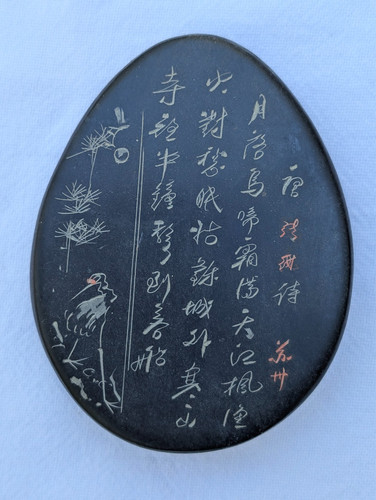 唐 張継詩 苏州
月落烏啼霜满天江楓渔
火對愁眠姑蘇城外寒山
寺夜半鐘聲到客船